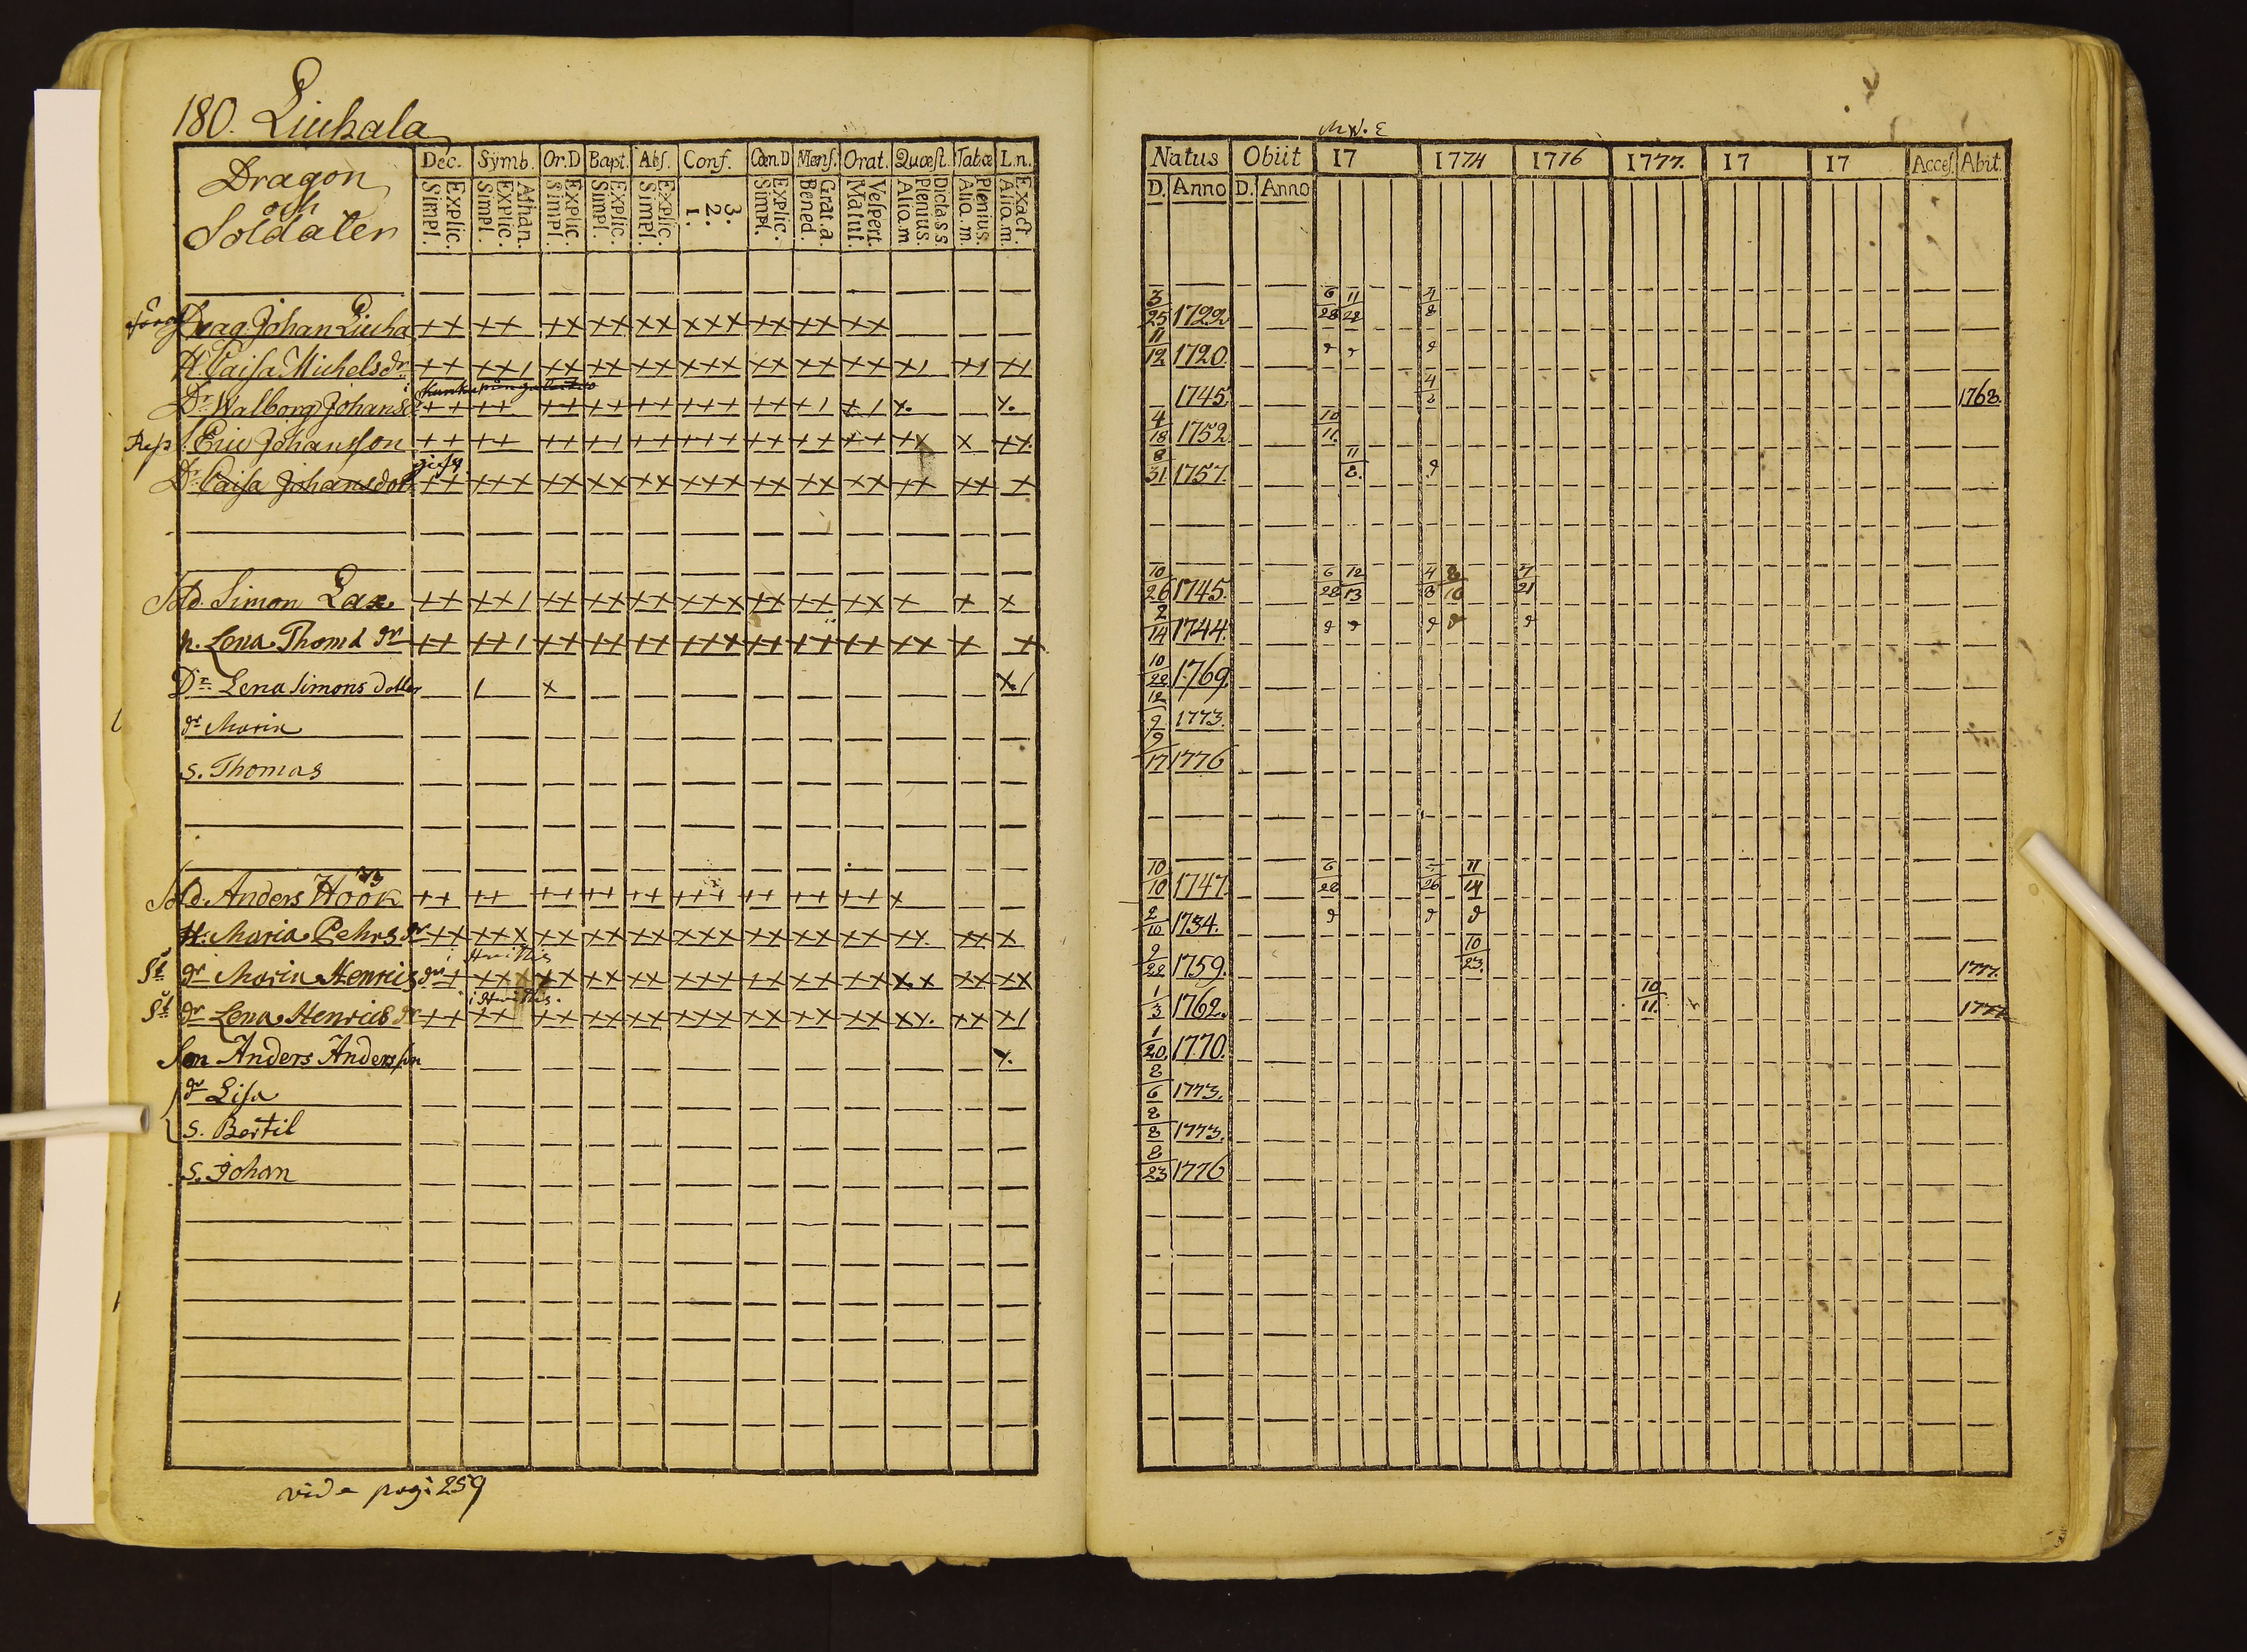 180. Liuhala
Dragon
och
Soldaten
Dec. Symb. Or.D Bapt. Abs. Conf. Cœn.D Mens. Orat. Quæst. Tabæ L.n.
Simpl. Explic. Simpl. Explic. Athan. Simpl. Explic. Simpl. Explic. Simpl. Explic. 1. 2. 3. Simpl. Explic. Bened. Grat.a. Matut. Vespert. Alia.m Plenius. Dicta.s.s Alia.m. Plenius. Alia.m. Exact.
Drag. Johan Liuha
H. Caisa Michelsdr
Dr. Walborg Johansd
Eric Johansson
Dr. Caisa Johansdott
Sold. Simon Lax
h. Lena Thomd dr
Dr. Lena Simons dotter
dr Maria
s. Thomas
Sold. Anders Höök
H. Maria Pehrs dr
dr Maria Henrics dr
dr Lena Henrics dr
Son Anders Andersson
dr Lisa
s. Bertil
s. Johan
vide pag: 259
Natus Obiit 17 1774 1776 1777. 17 17 Acces. Abit.
D. Anno D. Anno
3/25 1722 6/28 11/28 4/8
11/12 1720.
1745. 4/8 1768.
4/18 1752 10/11.
8/31 1757. 11/8.
10/26 1745. 6/28 12/13 4/8 8/10 7/21
2/14 1744.
10/22 1769
12/9 1773.
9/17 1776
10/10 1747. 6/28 11/14
2/10 1734.
9/22 1759. 10/23. 1777.
1/3 1762. 10/11. 1777.
1/20 1770.
8/6 1773.
8/8 1773.
8/23 1776